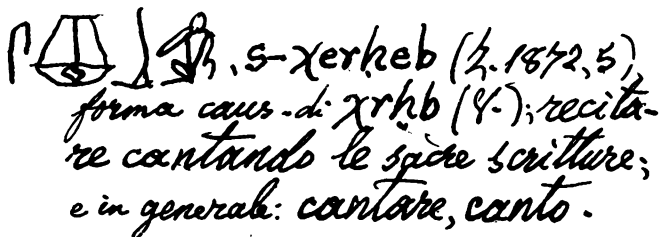 , s-χerḥeb (Z. 1872, 5),
forma caus. di χrḥb (V.); recita-
re cantando le sacre scritture;
e in generale: cantare, canto.